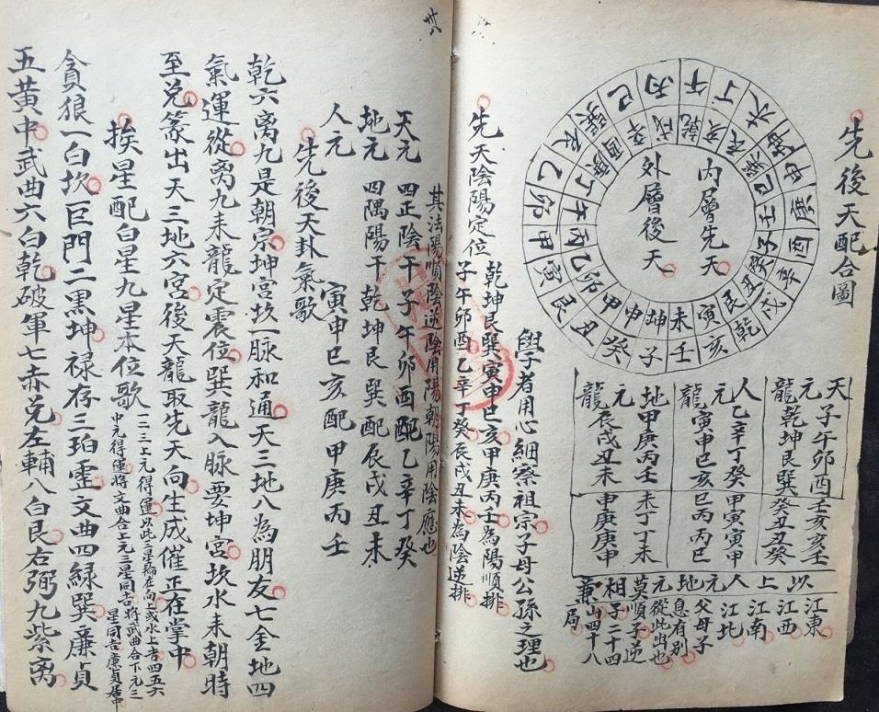 先後天配合圖
內層先天
外層後天
午丁未坤申庚酉辛戌乾亥壬子癸丑艮寅甲卯乙辰巽巳丙
乾亥辰巽巳壬子癸丑艮寅未坤申甲卯乙丙午丁庚酉辛戌
天元龍
子午卯酉
乾坤艮巽
壬亥亥壬
癸丑丑癸
人元龍
乙辛丁癸
寅申巳亥
甲寅寅甲
巳丙丙巳
地元龍
甲庚丙壬
辰戌丑未
未丁丁未
申庚庚申
以上人元地元莫相兼
江東
江西
江南
江北
父母子
息有別
從此出也
順子逆
子二十四
山四十八
局
學者用心細察祖宗子母公孫之理也
先天陰陽定位
乾坤艮巽寅申巳亥甲庚丙壬為陽順排
子午卯酉乙辛丁癸辰戌丑未為陰逆排
其法陽順陰逆陰用陽朝陽用陰應也
天元 四正陰干子午卯酉配乙辛丁癸
地元 四隅陽干乾坤艮巽配辰戌丑未
人元 寅申巳亥配甲庚丙壬
先後天卦氣歌
乾六离九是朝宗坤宮坎一脉和通天三地八為朋友七金地四
氣運從离九来龍定震位巽龍入脉要坤宮坎水来朝時
至兌篆出天三地六宮後天龍取先天向生成催正在掌中
挨星配白星九星本位歌
一二三上元得運以此三星輪在向上或水上者四五六
中元得運將文曲合上元三星同吉將武曲合下元三
星同吉廉貞居中
貪狼一白坎巨門二黑坤禄存三珀震文曲四緑巽廉貞
五黄中武曲六白乾破軍七赤兌左輔八白艮右弼九紫离